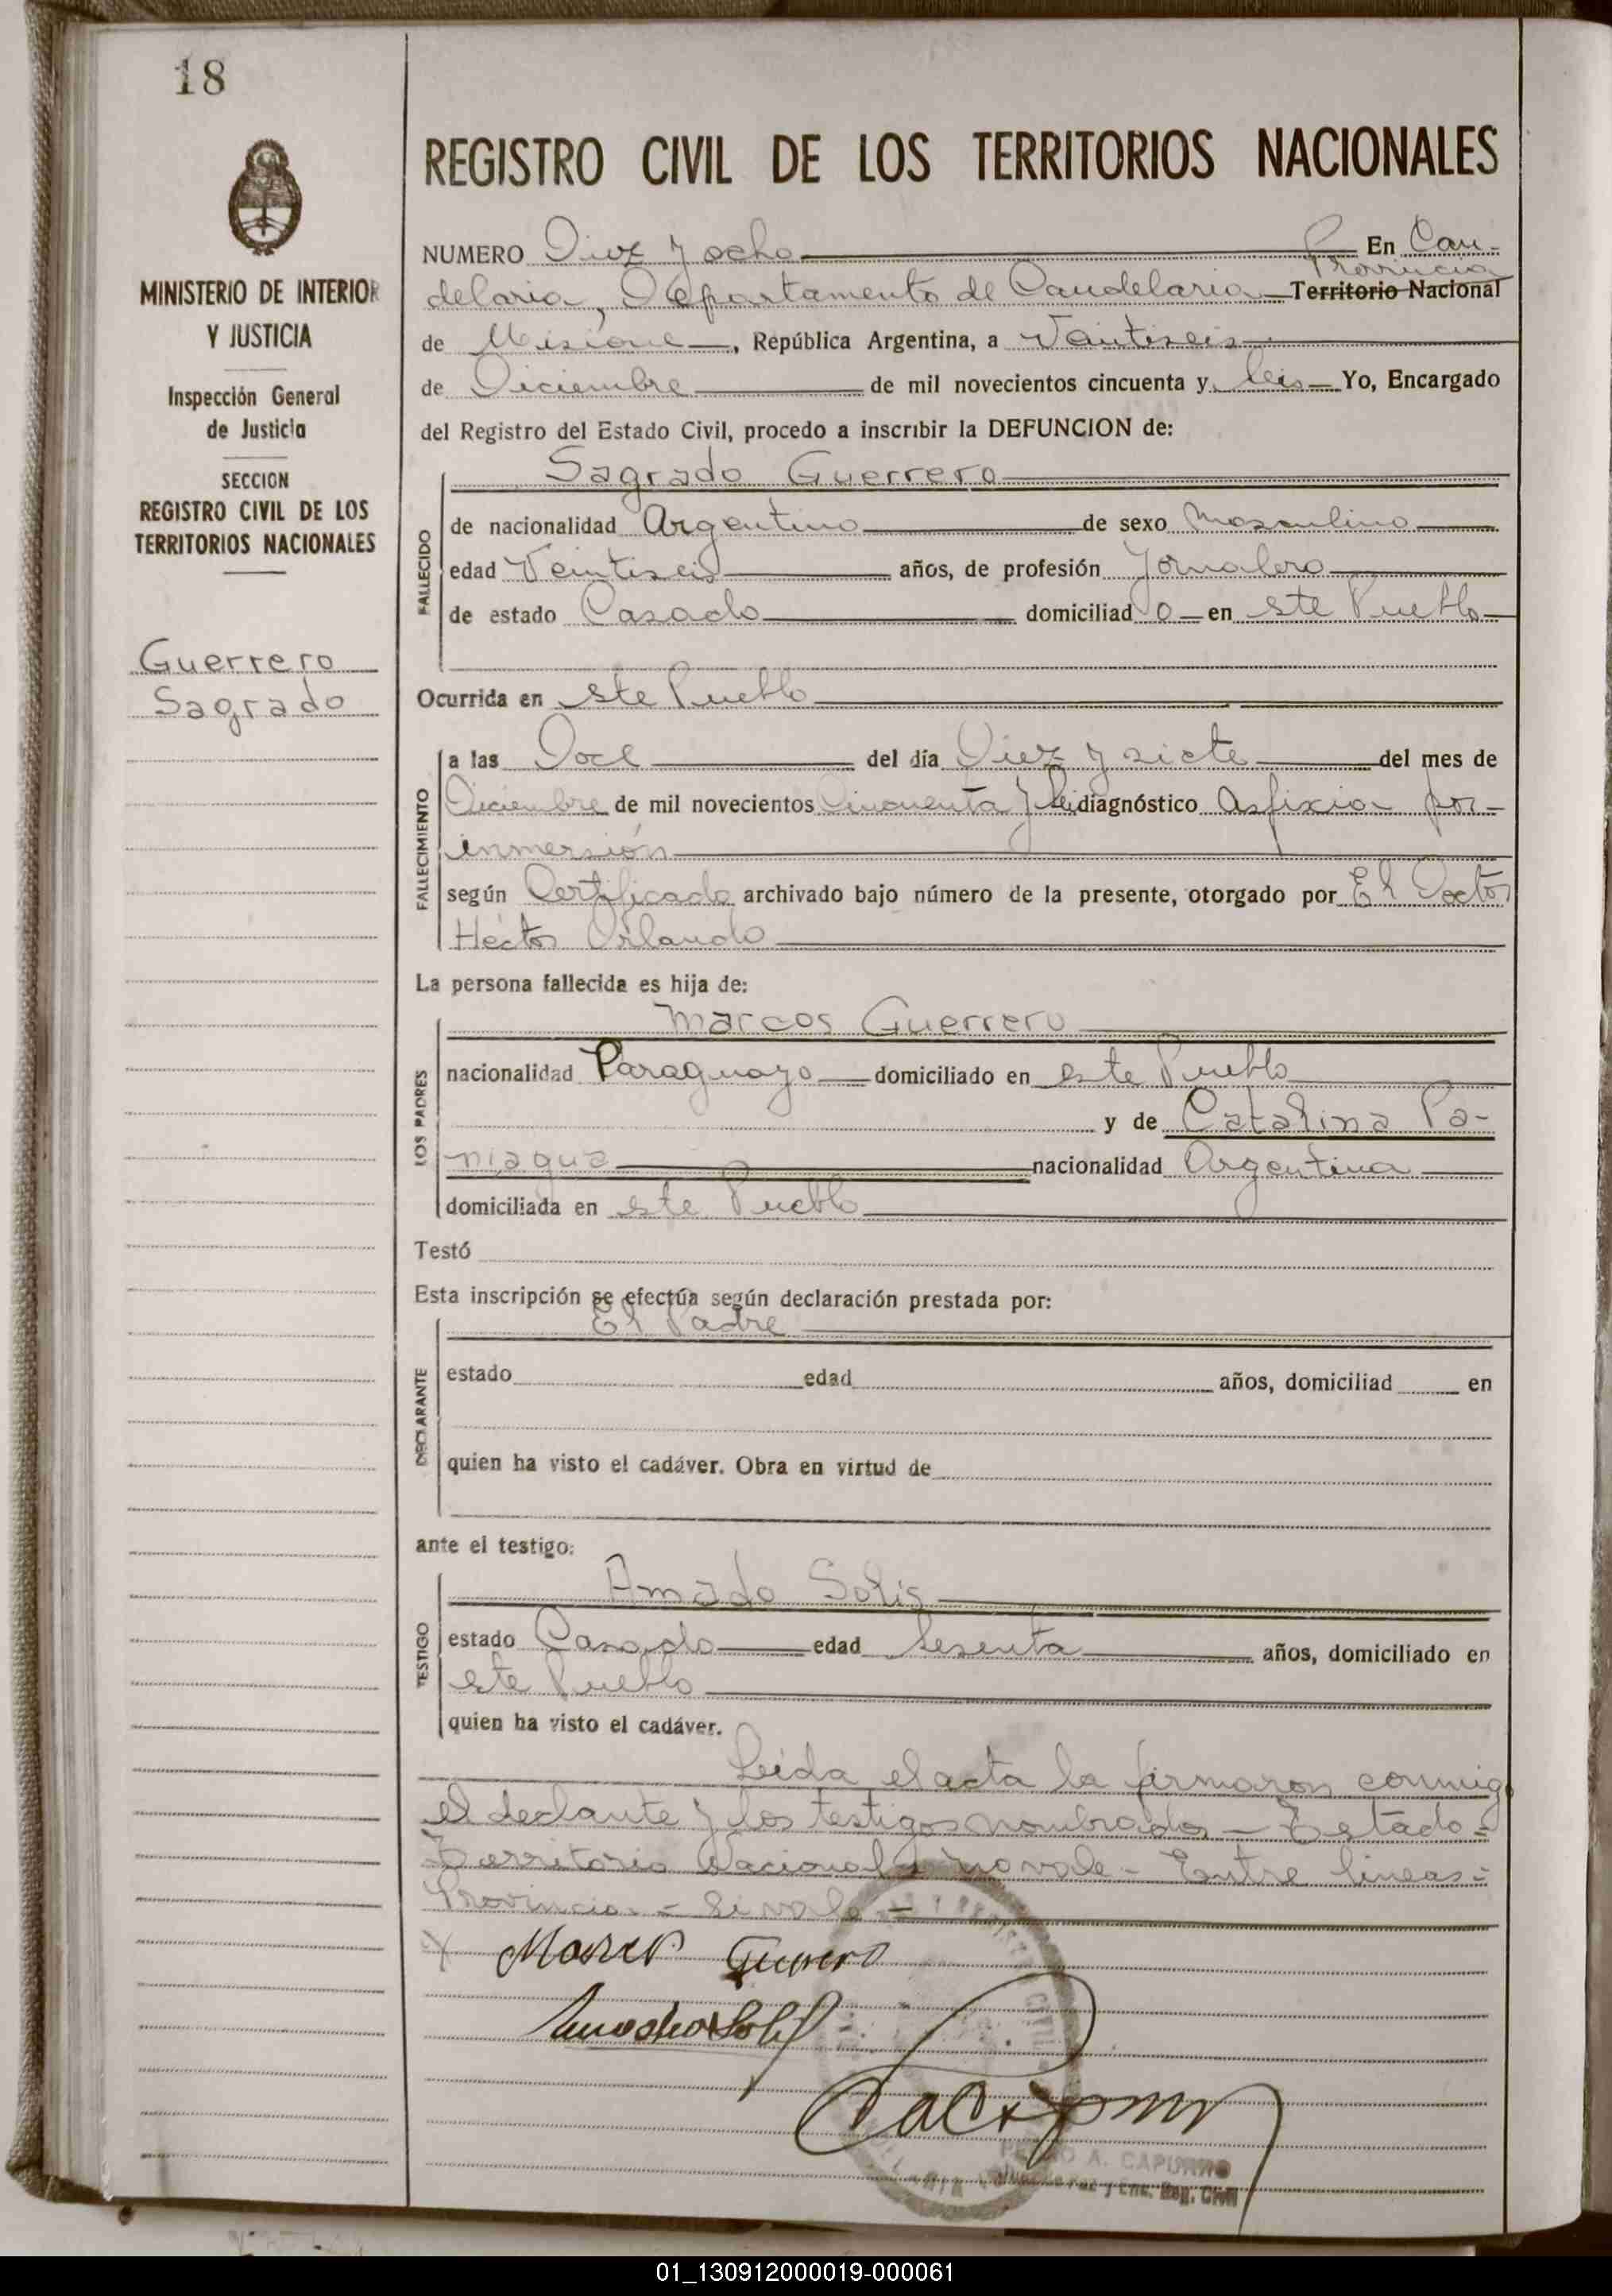 18
MINISTERIO DE INTERIOR
Y JUSTICIA
Inspección General
de Justicia
SECCION
REGISTRO CIVIL DE LOS
TERRITORIOS NACIONALES
Guerrero
Sagrado
REGISTRO CIVIL DE LOS TERRITORIOS NACIONALES
NUMERO Diez y ocho En Can-
Provincia
delaria, Departamento de Candelaria Territorio Nacional
de Misiones, República Argentina, a Veintiseis
de Diciembre de mil novecientos cincuenta y seis Yo, Encargado
del Registro del Estado Civil, procedo a inscribir la DEFUNCION de:
FALLECIDO
Sagrado Guerrero
de nacionalidad Argentino de sexo Masculino
edad Veintiseis años, de profesión Jornalero
de estado Casado domiciliad o en este Pueblo
Ocurrida en este Pueblo
FALLECIMIENTO
a las Doce del día Diez y siete del mes de
Diciembre de mil novecientos Cincuenta y Seis diagnóstico Asfixia por
inmersión
según Certificado archivado bajo número de la presente, otorgado por El Doctor
Héctor Orlando
La persona fallecida es hija de:
LOS PADRES
Marcos Guerrero
nacionalidad Paraguayo domiciliado en este Pueblo
y de Catalina Pa-
niagua nacionalidad Argentina
domiciliada en este Pueblo
Testó
Esta inscripción se efectúa según declaración prestada por:
DECLARANTE
El Padre
estado edad años, domiciliad en
quien ha visto el cadáver. Obra en virtud de
ante el testigo:
TESTIGO
Amado Solis
estado Casado edad Sesenta años, domiciliado en
este Pueblo
quien ha visto el cadáver.
Leida el acta la firmaron conmigo
el declante y los testigos nombrados - Testado =
Territorio Nacional = no vale - Entre lineas =
Provincia = Si vale =
Marcos Guerrero
Amado Solis
A. CAPURRO
Juez de Paz y Enc. Reg. Civil
01_130912000019-000061